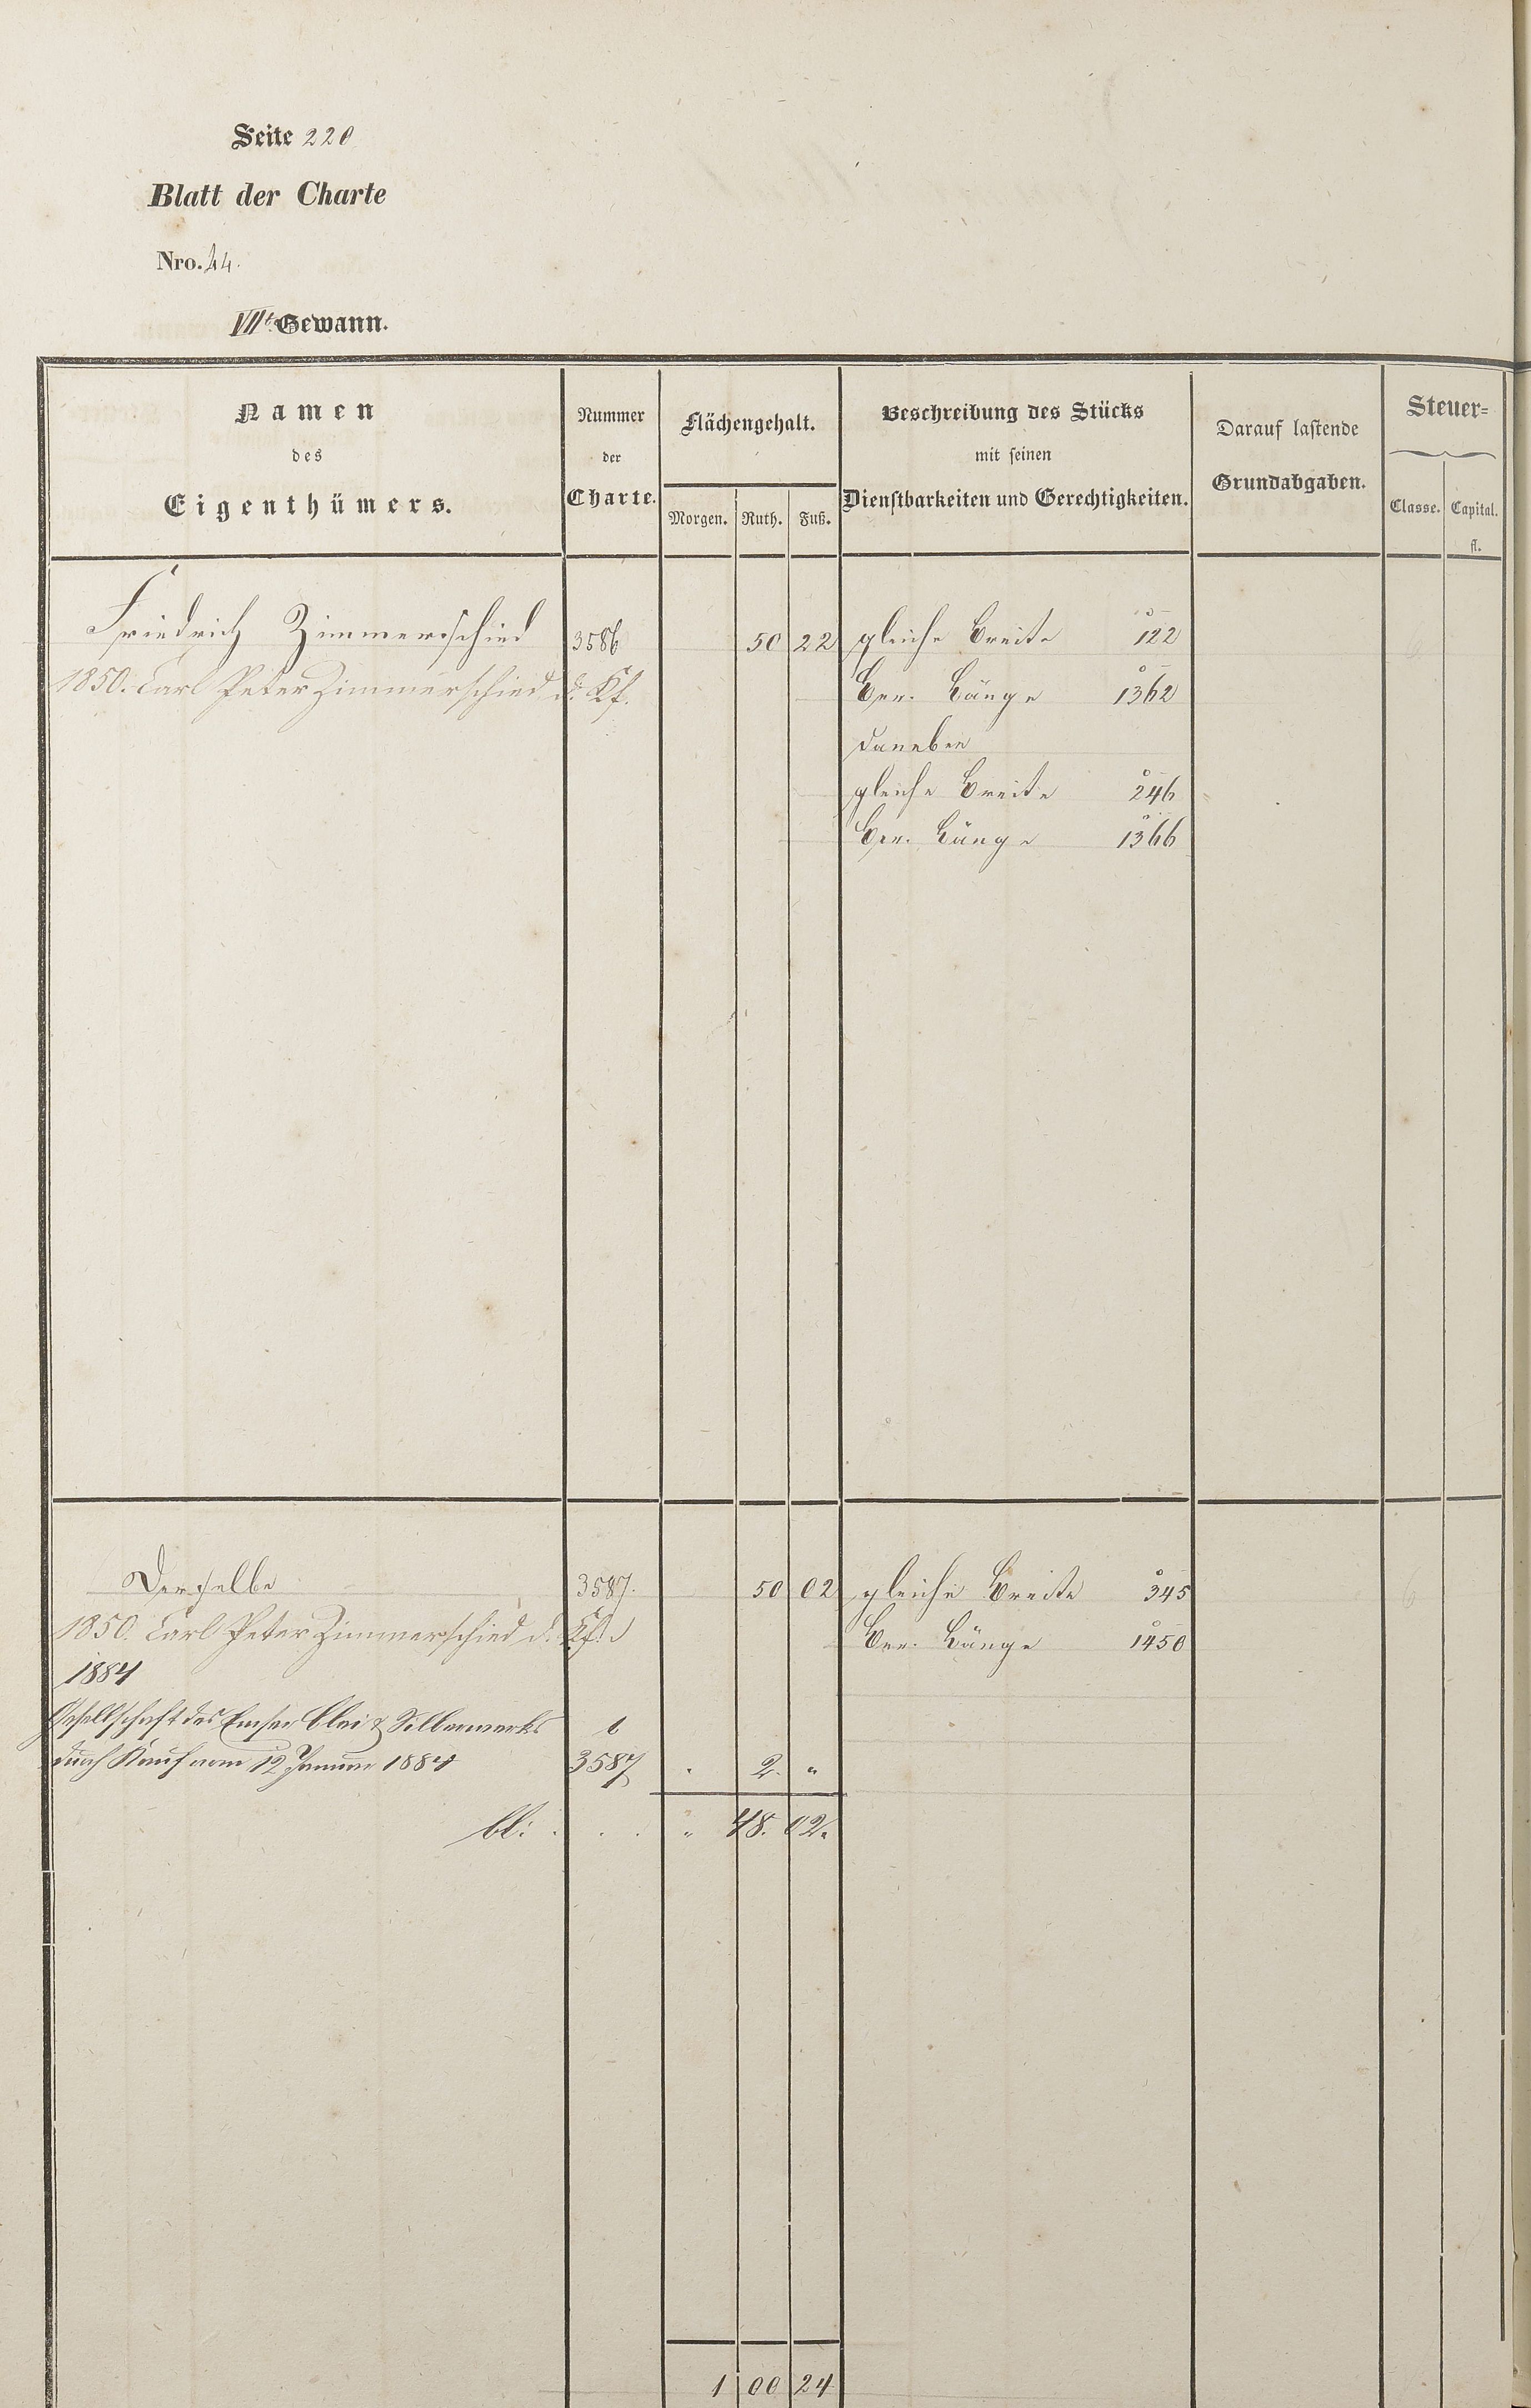 Seite 220
Blatt der Charte
Nro. 44.
VIIt. Gewann.
Namen des Eigenthümers.
Nummer der Charte.
Flächengehalt.
Morgen. Ruth. Fuß.
Beschreibung des Stücks mit seinen Dienstbarkeiten und Gerechtigkeiten.
Darauf lastende Grundabgaben.
Steuer=
Classe. Capital. fl.
Friedrich Zimmerschied 3586 50 22 gleiche Breite 122
1850. Carl Peter Zimmerschied d. Kf. Ber. Länge 1362
daneben
gleiche Breite 246
Ber. Länge 1366
Derselbe 3587. 50 02 gleiche Breite 345 6
1850. Carl Peter Zimmerschied d. Kf. Ber. Länge 1450
1884
Gesellschaft des Emser Blei & Silberwerks 1
durch Kauf vom 12 Januar 1884 3587 . 2. "
bl: . . . " 48. 02.
1 00 24